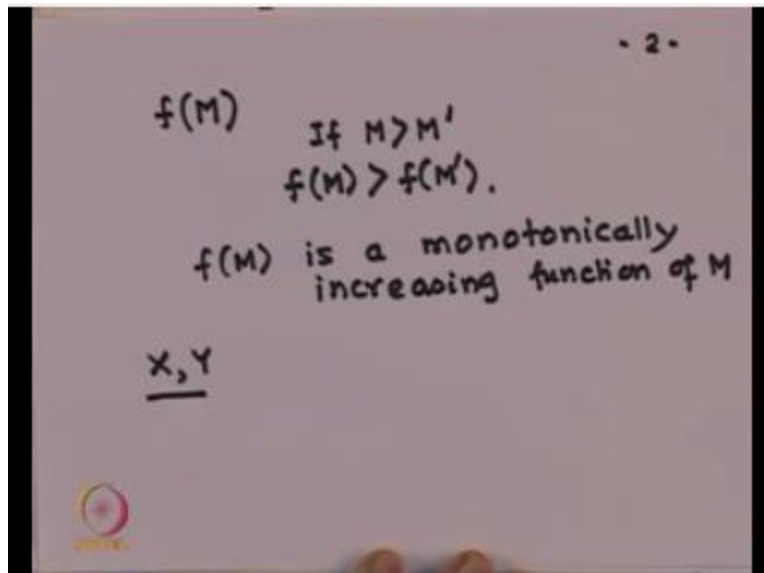 - 2 -
f(M)
If M > M'
f(M) > f(M').
f(M) is a monotonically
increasing function of M
X, Y